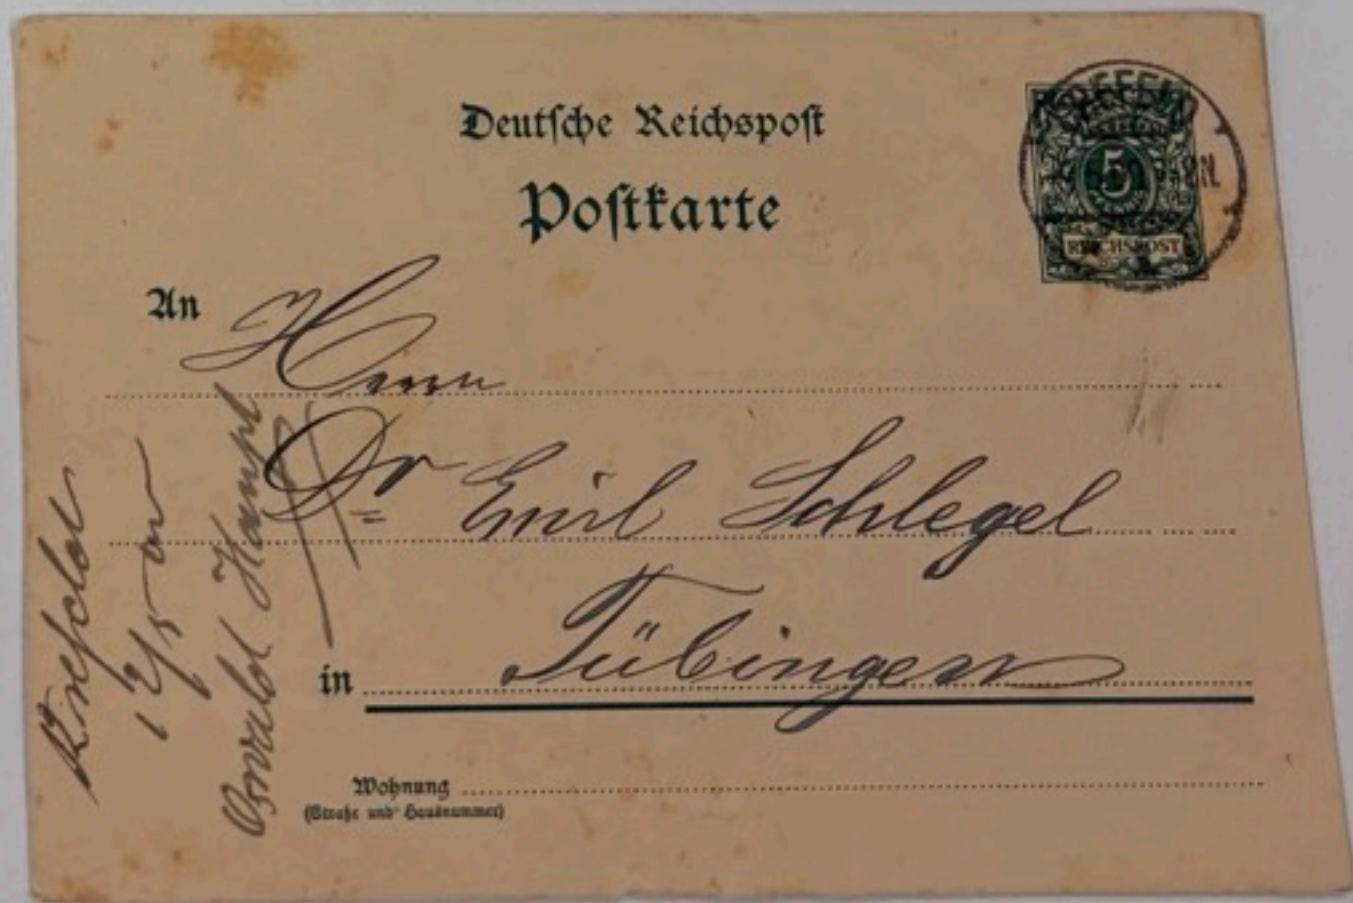 Deutsche Reichspost
Postkarte
5
REICHSPOST
CREFELD
8N.
An Herrn
Dr Emil Schlegel
in Tübingen
Wohnung
(Straße und Hausnummer)
Crefeld
12/5
Oswald Haupt